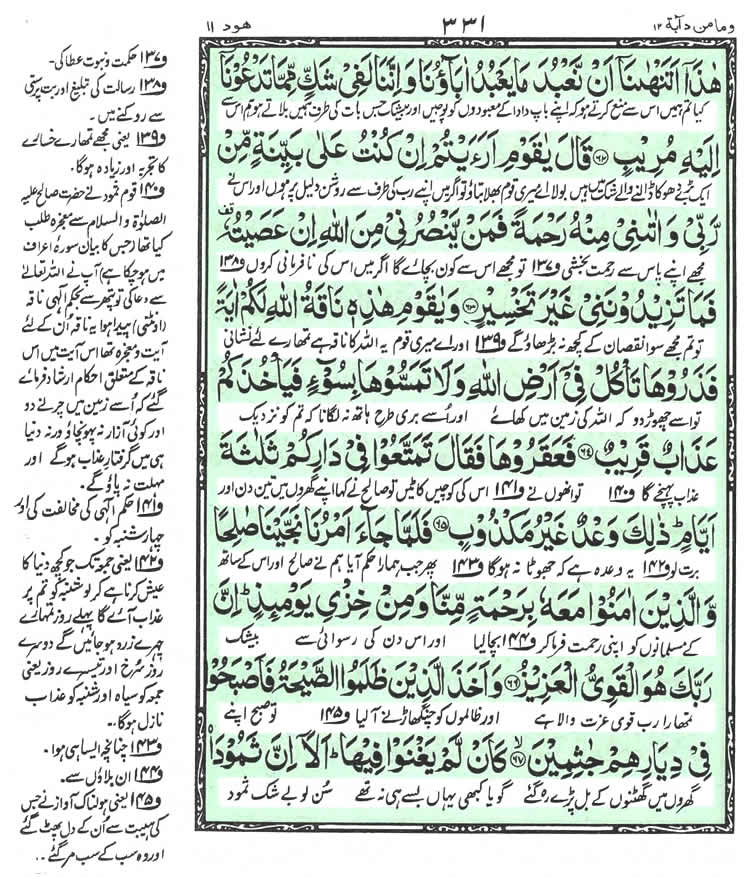 ومامن دآبة ۱۲
۳۳۱
هود ۱۱
هٰذَاۤ اَتَنْهٰىنَاۤ اَنْ نَّعْبُدَ مَا یَعْبُدُ اٰبَآؤُنَا وَ اِنَّنَا لَفِیْ شَكٍّ مِّمَّا تَدْعُوْنَاۤ
کیا تم ہمیں اس سے منع کرتے ہو کہ اپنے باپ دادا کے معبودوں کو پوجیں اور بیشک جس بات کی طرف ہمیں بلاتے ہو ہم اس سے
اِلَیْهِ مُرِیْبٍ ﴿۶۲﴾ قَالَ یٰقَوْمِ اَرَءَیْتُمْ اِنْ كُنْتُ عَلٰى بَیِّنَةٍ مِّنْ
ایک بڑے دھوکا ڈالنے والے شک میں ہیں بولا اے میری قوم بھلا بتاؤ تو اگر میں اپنے رب کی طرف سے روشن دلیل پر ہوں اور اس نے
رَّبِّیْ وَ اٰتٰىنِیْ مِنْهُ رَحْمَةً فَمَنْ یَّنْصُرُنِیْ مِنَ اللّٰهِ اِنْ عَصَیْتُهٗ
مجھے اپنے پاس سے رحمت بخشی و۱۳۷ تو مجھے اس سے کون بچائے گا اگر میں اس کی نافرمانی کروں و۱۳۸
فَمَا تَزِیْدُوْنَنِیْ غَیْرَ تَخْسِیْرٍ ﴿۶۳﴾ وَ یٰقَوْمِ هٰذِهٖ نَاقَةُ اللّٰهِ لَكُمْ اٰیَةً
تو تم مجھے سوا نقصان کے کچھ نہ بڑھاؤ گے و۱۳۹ اور اے میری قوم یہ اللہ کا ناقہ ہے تمھارے لئے نشانی
فَذَرُوْهَا تَاْكُلْ فِیْۤ اَرْضِ اللّٰهِ وَ لَا تَمَسُّوْهَا بِسُوْٓءٍ فَیَاْخُذَكُمْ
تو اسے چھوڑ دو کہ اللہ کی زمین میں کھائے اور اُسے بری طرح ہاتھ نہ لگانا کہ تم کو نزدیک
عَذَابٌ قَرِیْبٌ ﴿۶۴﴾ فَعَقَرُوْهَا فَقَالَ تَمَتَّعُوْا فِیْ دَارِكُمْ ثَلٰثَةَ
عذاب پہنچے گا و۱۴۰ تو انھوں نے و۱۴۱ اس کی کوچیں کاٹیں تو صالح نے کہا اپنے گھروں میں تین دن اور
اَیَّامٍ ؕ ذٰلِكَ وَعْدٌ غَیْرُ مَكْذُوْبٍ ﴿۶۵﴾ فَلَمَّا جَآءَ اَمْرُنَا نَجَّیْنَا صٰلِحًا
برت لو و۱۴۲ یہ وعدہ ہے کہ جھوٹا نہ ہوگا و۱۴۳ پھر جب ہمارا حکم آیا ہم نے صالح اور اس کے ساتھ
وَّ الَّذِیْنَ اٰمَنُوْا مَعَهٗ بِرَحْمَةٍ مِّنَّا وَ مِنْ خِزْیِ یَوْمِىٕذٍ ؕ اِنَّ
کے مسلمانوں کو اپنی رحمت فرما کر و۱۴۴ بچالیا اور اس دن کی رسوائی سے بیشک
رَبَّكَ هُوَ الْقَوِیُّ الْعَزِیْزُ ﴿۶۶﴾ وَ اَخَذَ الَّذِیْنَ ظَلَمُوا الصَّیْحَةُ فَاَصْبَحُوْا
تمھارا رب قوی عزت والا ہے اور ظالموں کو چنگھاڑ نے آلیا و۱۴۵ تو صبح اپنے
فِیْ دِیَارِهِمْ جٰثِمِیْنَ ﴿۶۷﴾ كَاَنْ لَّمْ یَغْنَوْا فِیْهَا ؕ اَلَاۤ اِنَّ ثَمُوْدَاۡ
گھروں میں گھٹنوں کے بل پڑے رہ گئے گویا کبھی یہاں بسے ہی نہ تھے سُن لو بے شک ثمود
و۱۳۷ حکمت و نبوت عطا کی۔
و۱۳۸ رسالت کی تبلیغ اور بت پرستی
سے روکنے میں۔
و۱۳۹ یعنی مجھے تمھارے خسارے
کا تجربہ اور زیادہ ہوگا۔
و۱۴۰ قوم ثمود نے حضرت صالح علیہ
الصلوٰۃ والسلام سے معجزہ طلب
کیا تھا (جس کا بیان سورۂ اعراف
میں ہو چکا ہے) آپ نے اللہ تعالیٰ
سے دعا کی تو پتھر سے بحکم الٰہی ناقہ
(اونٹنی) پیدا ہوا یہ ناقہ اُن کے لئے
آیت و معجزہ تھا اس آیت میں اس
ناقہ کے متعلق احکام ارشاد فرمائے
گئے کہ اُسے زمین میں چرنے دو
اور کوئی آزار نہ پہونچاؤ ورنہ دنیا
ہی میں گرفتار عذاب ہوگے اور
مہلت نہ پاؤ گے۔
و۱۴۱ حکم الٰہی کی مخالفت کی اور
چہار شنبہ کو۔
و۱۴۲ یعنی جمعہ تک جو کچھ دنیا کا
عیش کرنا ہے کر لو شنبہ کو تم پر
عذاب آئے گا پہلے روز تمہارے
چہرے زرد ہو جائیں گے دوسرے
روز سُرخ اور تیسرے روز یعنی
جمعہ کو سیاہ اور شنبہ کو عذاب
نازل ہوگا۔
و۱۴۳ چنانچہ ایسا ہی ہوا۔
و۱۴۴ ان بلاؤں سے۔
و۱۴۵ یعنی ہولناک آواز نے جس
کی ہیبت سے اُن کے دل پھٹ گئے
اور وہ سب کے سب مر گئے۔۔